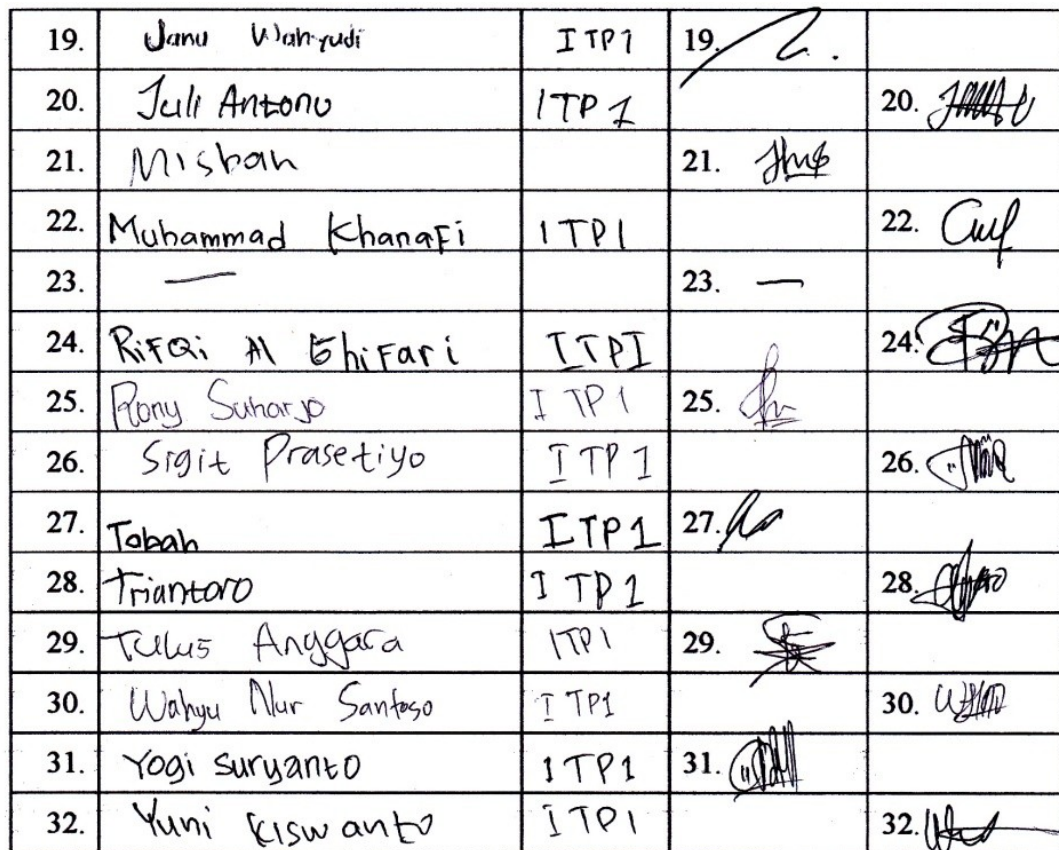 19. Janu Wahyudi ITP1 19.
20. Juli Antono ITP 1 20.
21. Misbah 21.
22. Muhammad KhanaFi ITP1 22.
23. — 23. —
24. RiFQi Al GhiFari ITPI 24.
25. Rony Suharjo I TP1 25.
26. Sigit Prasetiyo I TP 1 26.
27. Tobah I TP 1 27.
28. Triantoro I TP 1 28.
29. Tulus Anggara ITP1 29.
30. Wahyu Nur Santoso I TP1 30.
31. Yogi suryanto ITP1 31.
32. Yuni Kiswanto I TP1 32.